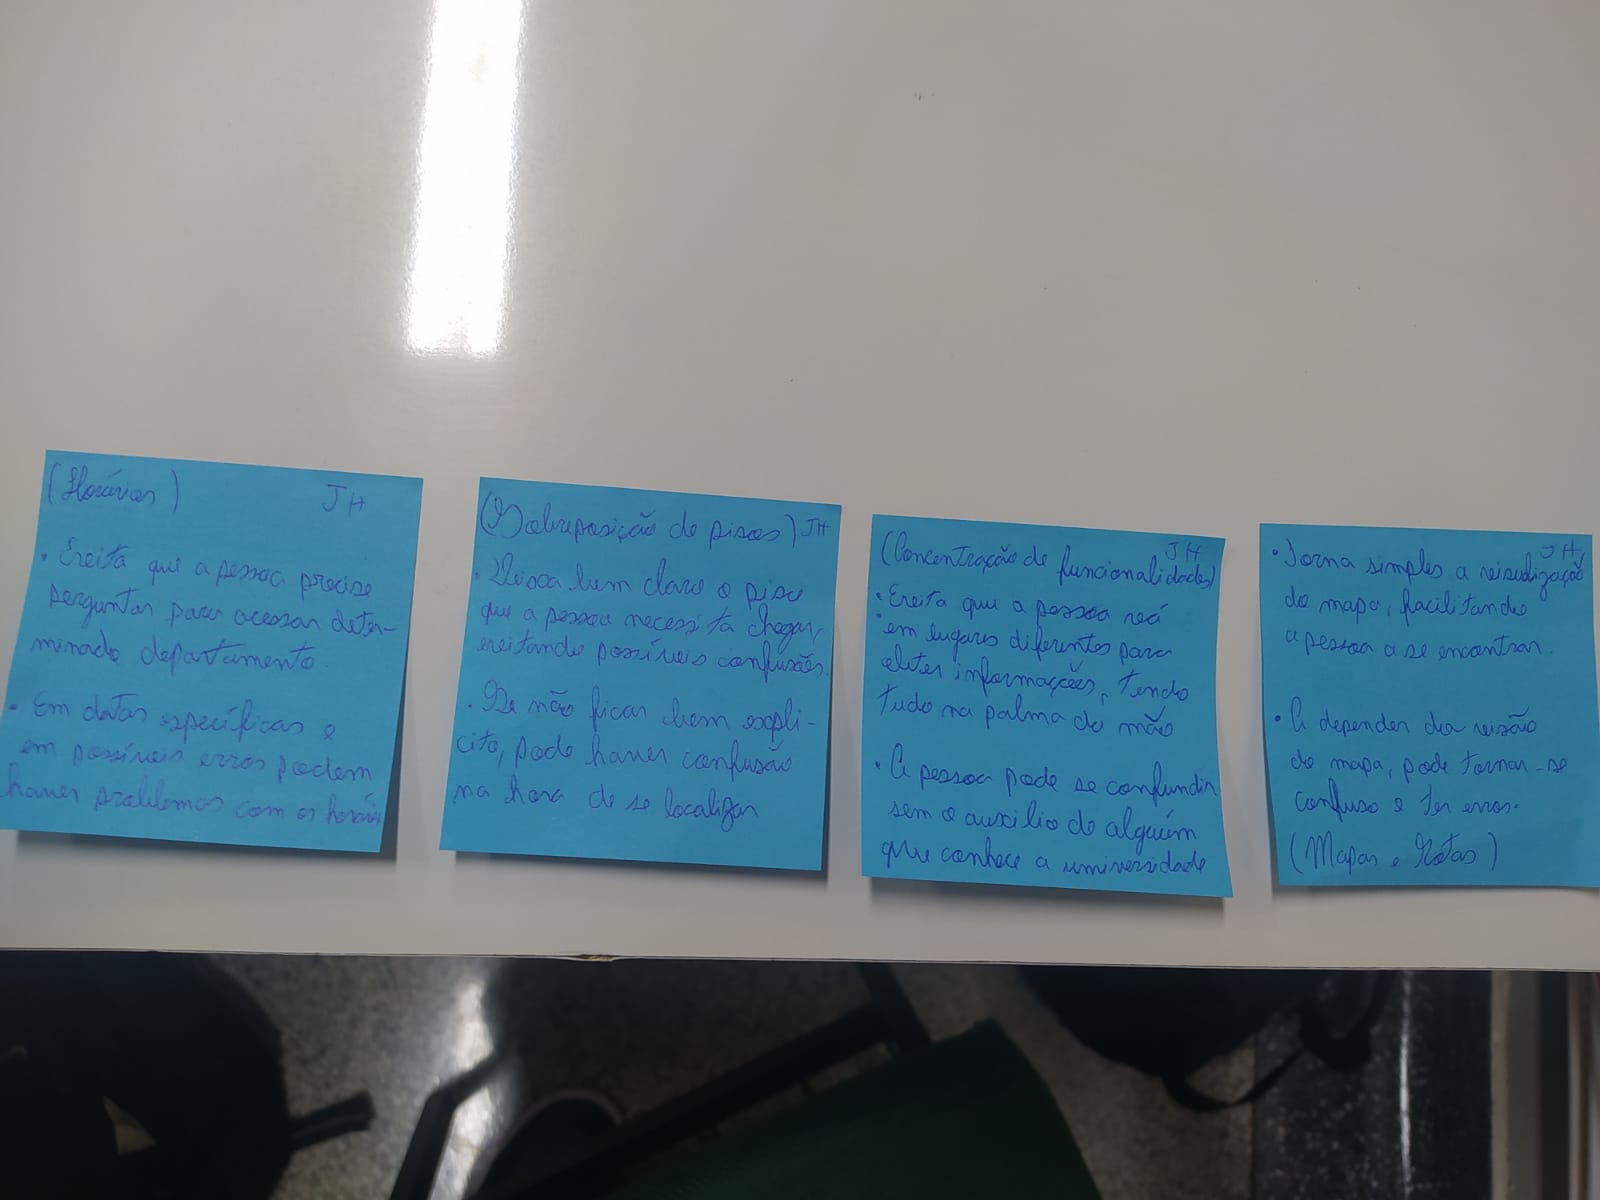 (Horários) JH
• Evita que a pessoa precise
perguntar para acessar deter-
minado departamento.
• Em datas específicas e
em possíveis erros podem
haver problemas com os horários
(Sobreposição de pisos) JH
• Deixa bem claro o piso
que a pessoa necessita chegar,
evitando possíveis confusões.
• Se não ficar bem explí-
cito, pode haver confusão
na hora de se localizar
(Concentração de funcionalidades) JH
• Evita que a pessoa vá
em lugares diferentes para
obter informações, tendo
tudo na palma da mão
• A pessoa pode se confundir
sem o auxilio de alguém
que conhece a universidade
JH
• Torna simples a visualização
do mapa, facilitando
a pessoa a se encontrar.
• A depender da visão
do mapa, pode tornar-se
confuso e ter erros.
(Mapas e Rotas)